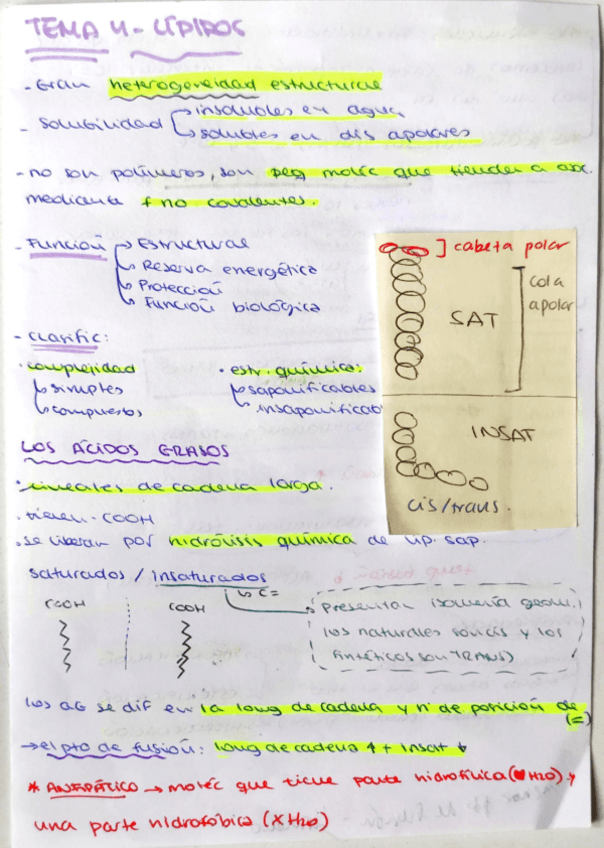 TEMA 4- LÍPIDOS
- Gran heterogeneidad estructural
- Solubilidad
insolubles en agua
solubles en dis apolares
- no son polímeros, son peq moléc que tienden a asoc.
mediante f no covalentes.
- Función
→ Estructural
Reserva energética
Protección
Función biológica
- Clasific:
· complejidad
simples
compuestos
· estr. química:
saponificables
insaponificab
] cabeza polar
SAT
cola
apolar
INSAT
cis/trans.
LOS ÁCIDOS GRASOS
· lineales de cadena larga.
· tienen -COOH
· se liberan por hidrólisis química de lip. sap.
saturados / insaturados
↳ C=
COOH
COOH
Presentan isomería geom.
(los naturales son cis y los
sintéticos son TRANS)
los AG se dif en la long de cadena y nº de posición de
(=)
→ el pto de fusión: long de cadena ↑ + insat ↓
* ANFIPÁTICO → moléc que tiene parte hidrofílica (♥ H2O) y
una parte hidrofóbica (X H2O)